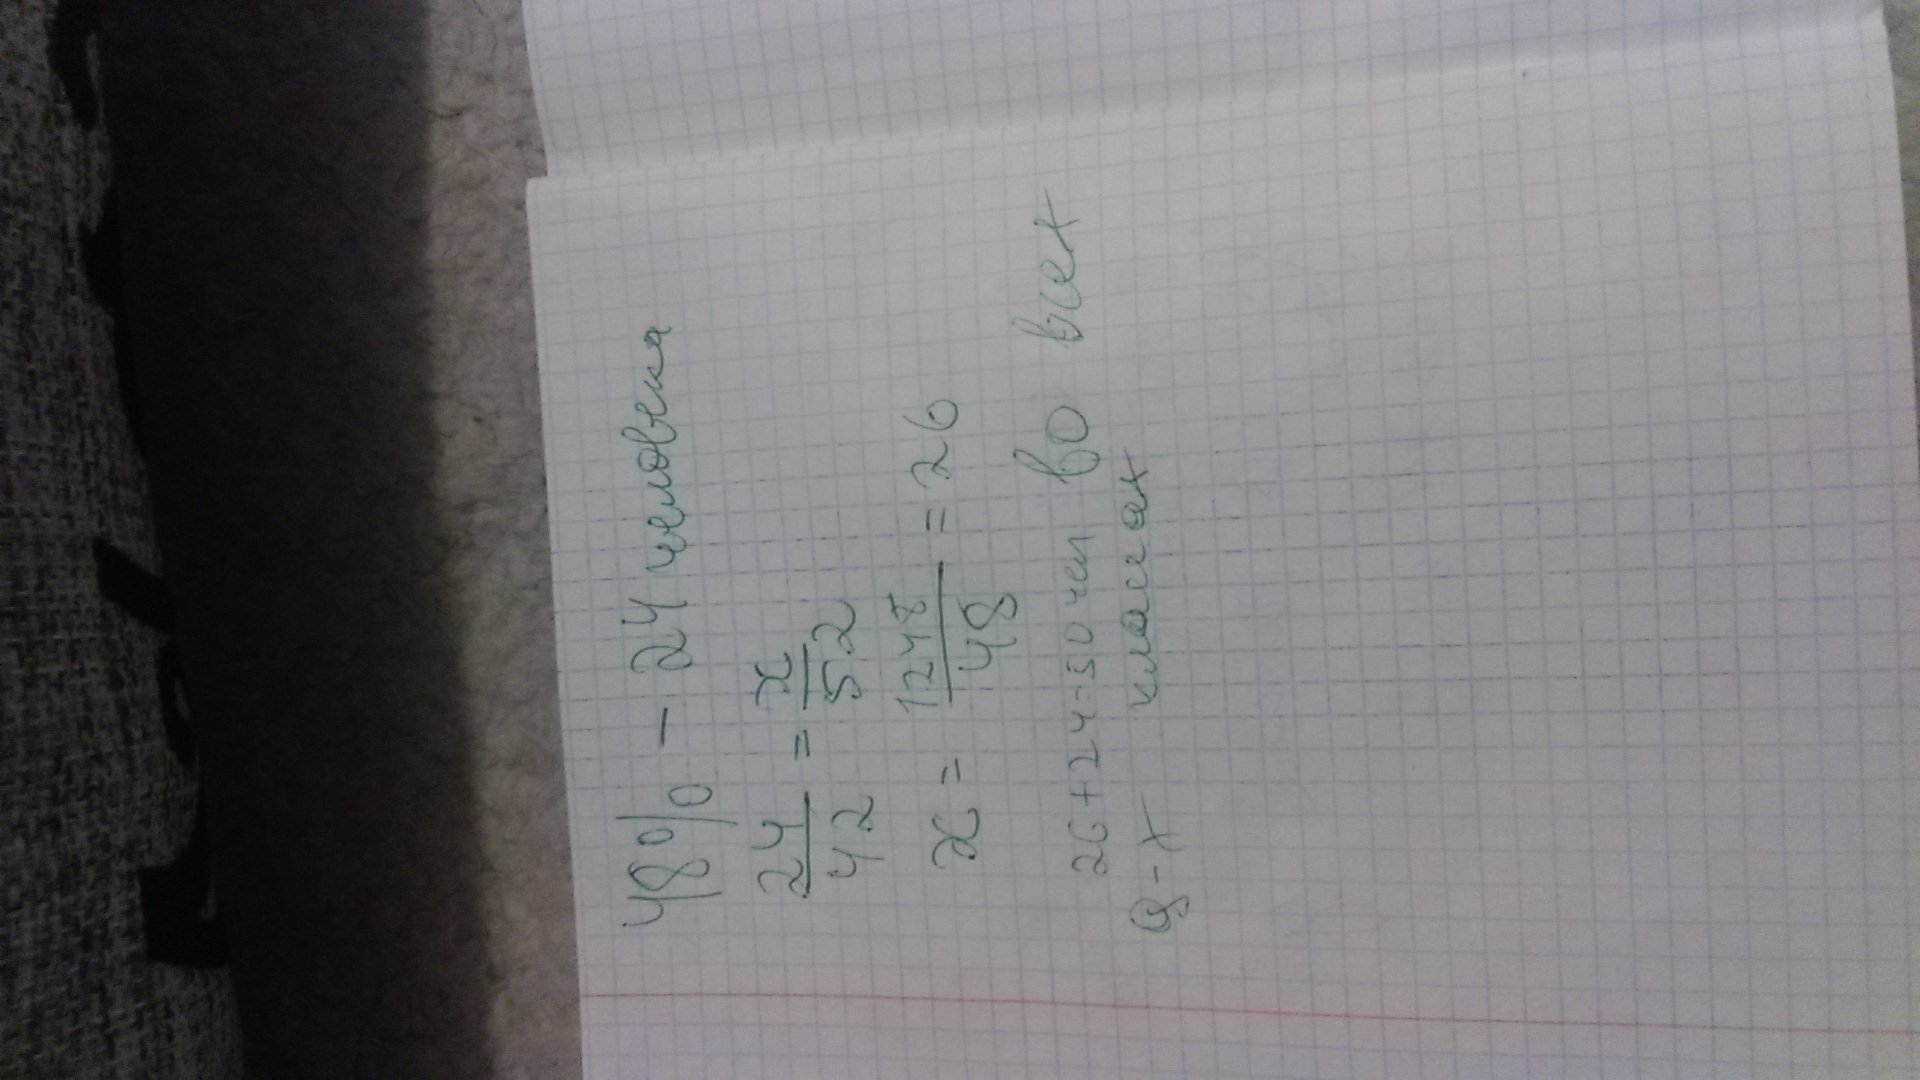 48% - 24 человека
24/42 = x/52
x = 1248/48 = 26
26+24=50 чел во всех
8-х классах